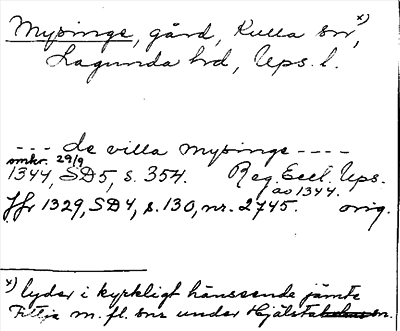 Mysinge, gård, Kulla sn x),
Lagunda hd, Ups. l.
--- de villa mysinge ----
omkr. 29/9
1344, SD5, s. 354. Reg. Eccl. Ups.
ao 1344.
Jfr 1329, SD4, s. 130, nr. 2745. orig.
x) lyder i kyrkligt hänseende jämte
m. fl. snr under Hjälsta sn.